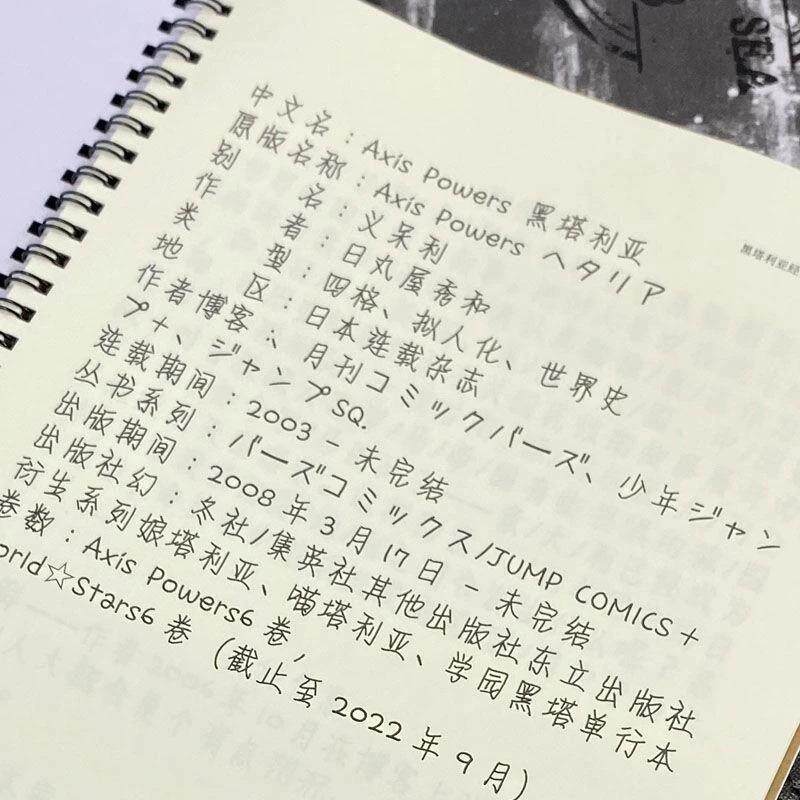 SEA
黑塔利亚
中文名：Axis Powers 黑塔利亚
原版名称：Axis Powers ヘタリア
别名：义呆利
作者：日丸屋秀和
类型：四格、拟人化、世界史
地区：日本连载杂志
作者博客：、月刊コミックバーズ、少年ジャン
プ+、ジャンプSQ.
连载期间：2003 - 未完结
丛书系列：バーズコミックス/JUMP COMICS+
出版期间：2008 年 3 月 17 日 - 未完结
出版社幻：冬社/集英社其他出版社东立出版社
衍生系列娘塔利亚、喵塔利亚、学园黑塔单行本
卷数：Axis Powers6 卷，
orld☆Stars6 卷（截止至 2022 年 9 月）